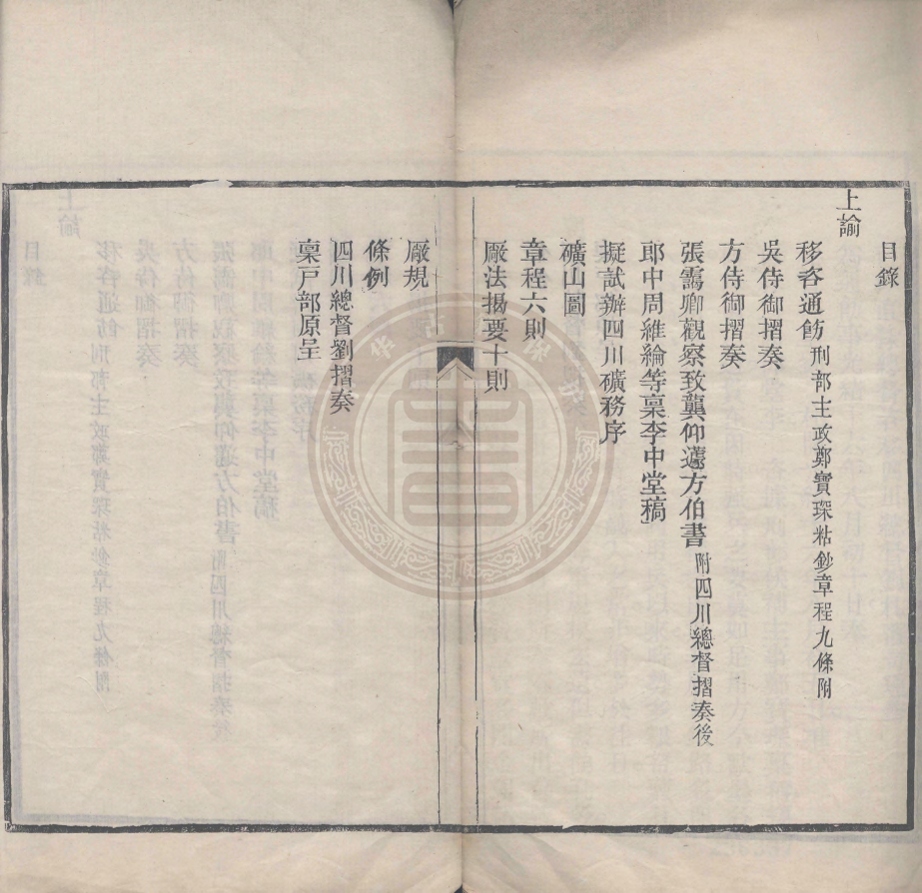 目錄
上諭
移咨通飭刑部主政鄭寶琛粘鈔章程九條附
吳侍御摺奏
方侍御摺奏
張靄卿觀察致龔仰蘧方伯書附四川總督摺奏後
郎中周維綸等稟李中堂稿
擬試辦四川礦務序
礦山圖
章程六則
厰法揭要十則
厰規
條例
四川總督劉摺奏
稟戶部原呈